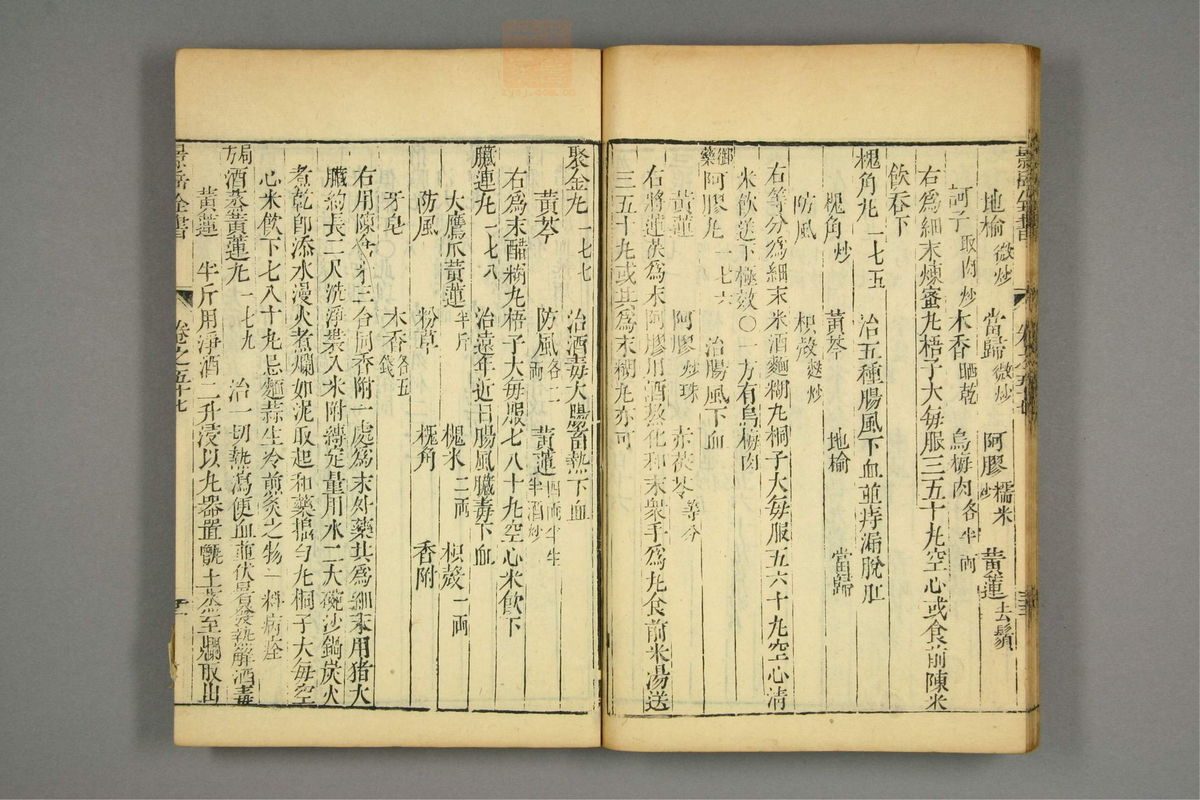 地榆微炒 當歸微炒 阿膠糯米炒 黃蓮去鬚
訶子取肉炒 木香晒乾 烏梅肉各半兩
右為細末煉蜜丸梧子大每服三五十丸空心或食前陳米
飲吞下
槐角丸一七五 治五種腸風下血並痔漏脫肛
槐角炒 黃芩 地榆 當歸
防風 枳殼麩炒
右等分為細末米酒麵糊丸桐子大每服五六十丸空心清
米飲送下極效〇一方有烏梅肉
御藥阿膠丸一七六 治腸風下血
黃蓮 阿膠炒珠 赤茯苓等分
右將蓮茯為末阿膠用酒蒸化和末衆手為丸食前米湯送
三五十丸或共為末糊丸亦可
聚金丸一七七 治酒毒大腸蓄熱下血
黃芩 防風各二兩 黃蓮四兩半生半酒炒
右為末醋糊丸梧子大每服七八十丸空心米飲下
臟連丸一七八 治遠年近日腸風臟毒下血
大鷹爪黃蓮半斤 槐米二兩 枳殼一兩
防風 粉草 槐角 香附
牙皂 木香各五錢
右用陳倉米三合同香附一處為末外藥共為細末用猪大
臟約長二尺洗淨裝入米附縛定量用水二大碗沙鍋炭火
煮乾即添水漫火煮爛如泥取起和藥搗勻丸桐子大每空
心米飲下七八十丸忌麵蒜生冷煎炙之物一料病痊
局方酒蒸黃蓮丸一七九 治一切熱瀉便血並伏暑發熱解酒毒
黃蓮 半斤用淨酒二升浸以瓦器置甑上蒸至爛取出
景岳全書 卷之五十七